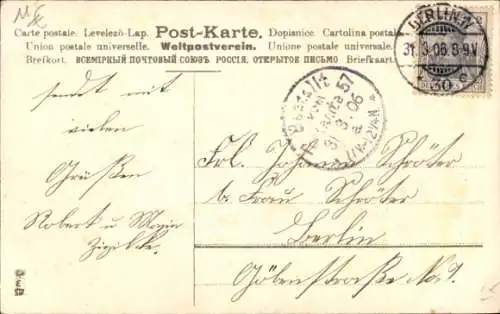 Post-Karte.
Carte postale. Levelező-Lap. Dopisnice. Cartolina postale.
Union postale universelle. Weltpostverein. Unione postale universale.
Brefkort. ВСЕМІРНЫЙ ПОЧТОВЫЙ СОЮЗЪ РОССІЯ. ОТКРЫТОЕ ПИСЬМО Briefkaart.
BERLIN
31.3.06.8-9V
50 c
57
31.3.06
11¼-12¼N
sendet mit
vielen
Grüßen
Robert u
Frl. Johanna Schröter
b. Frau Schröter
Berlin
Göbenstraße No. 9.